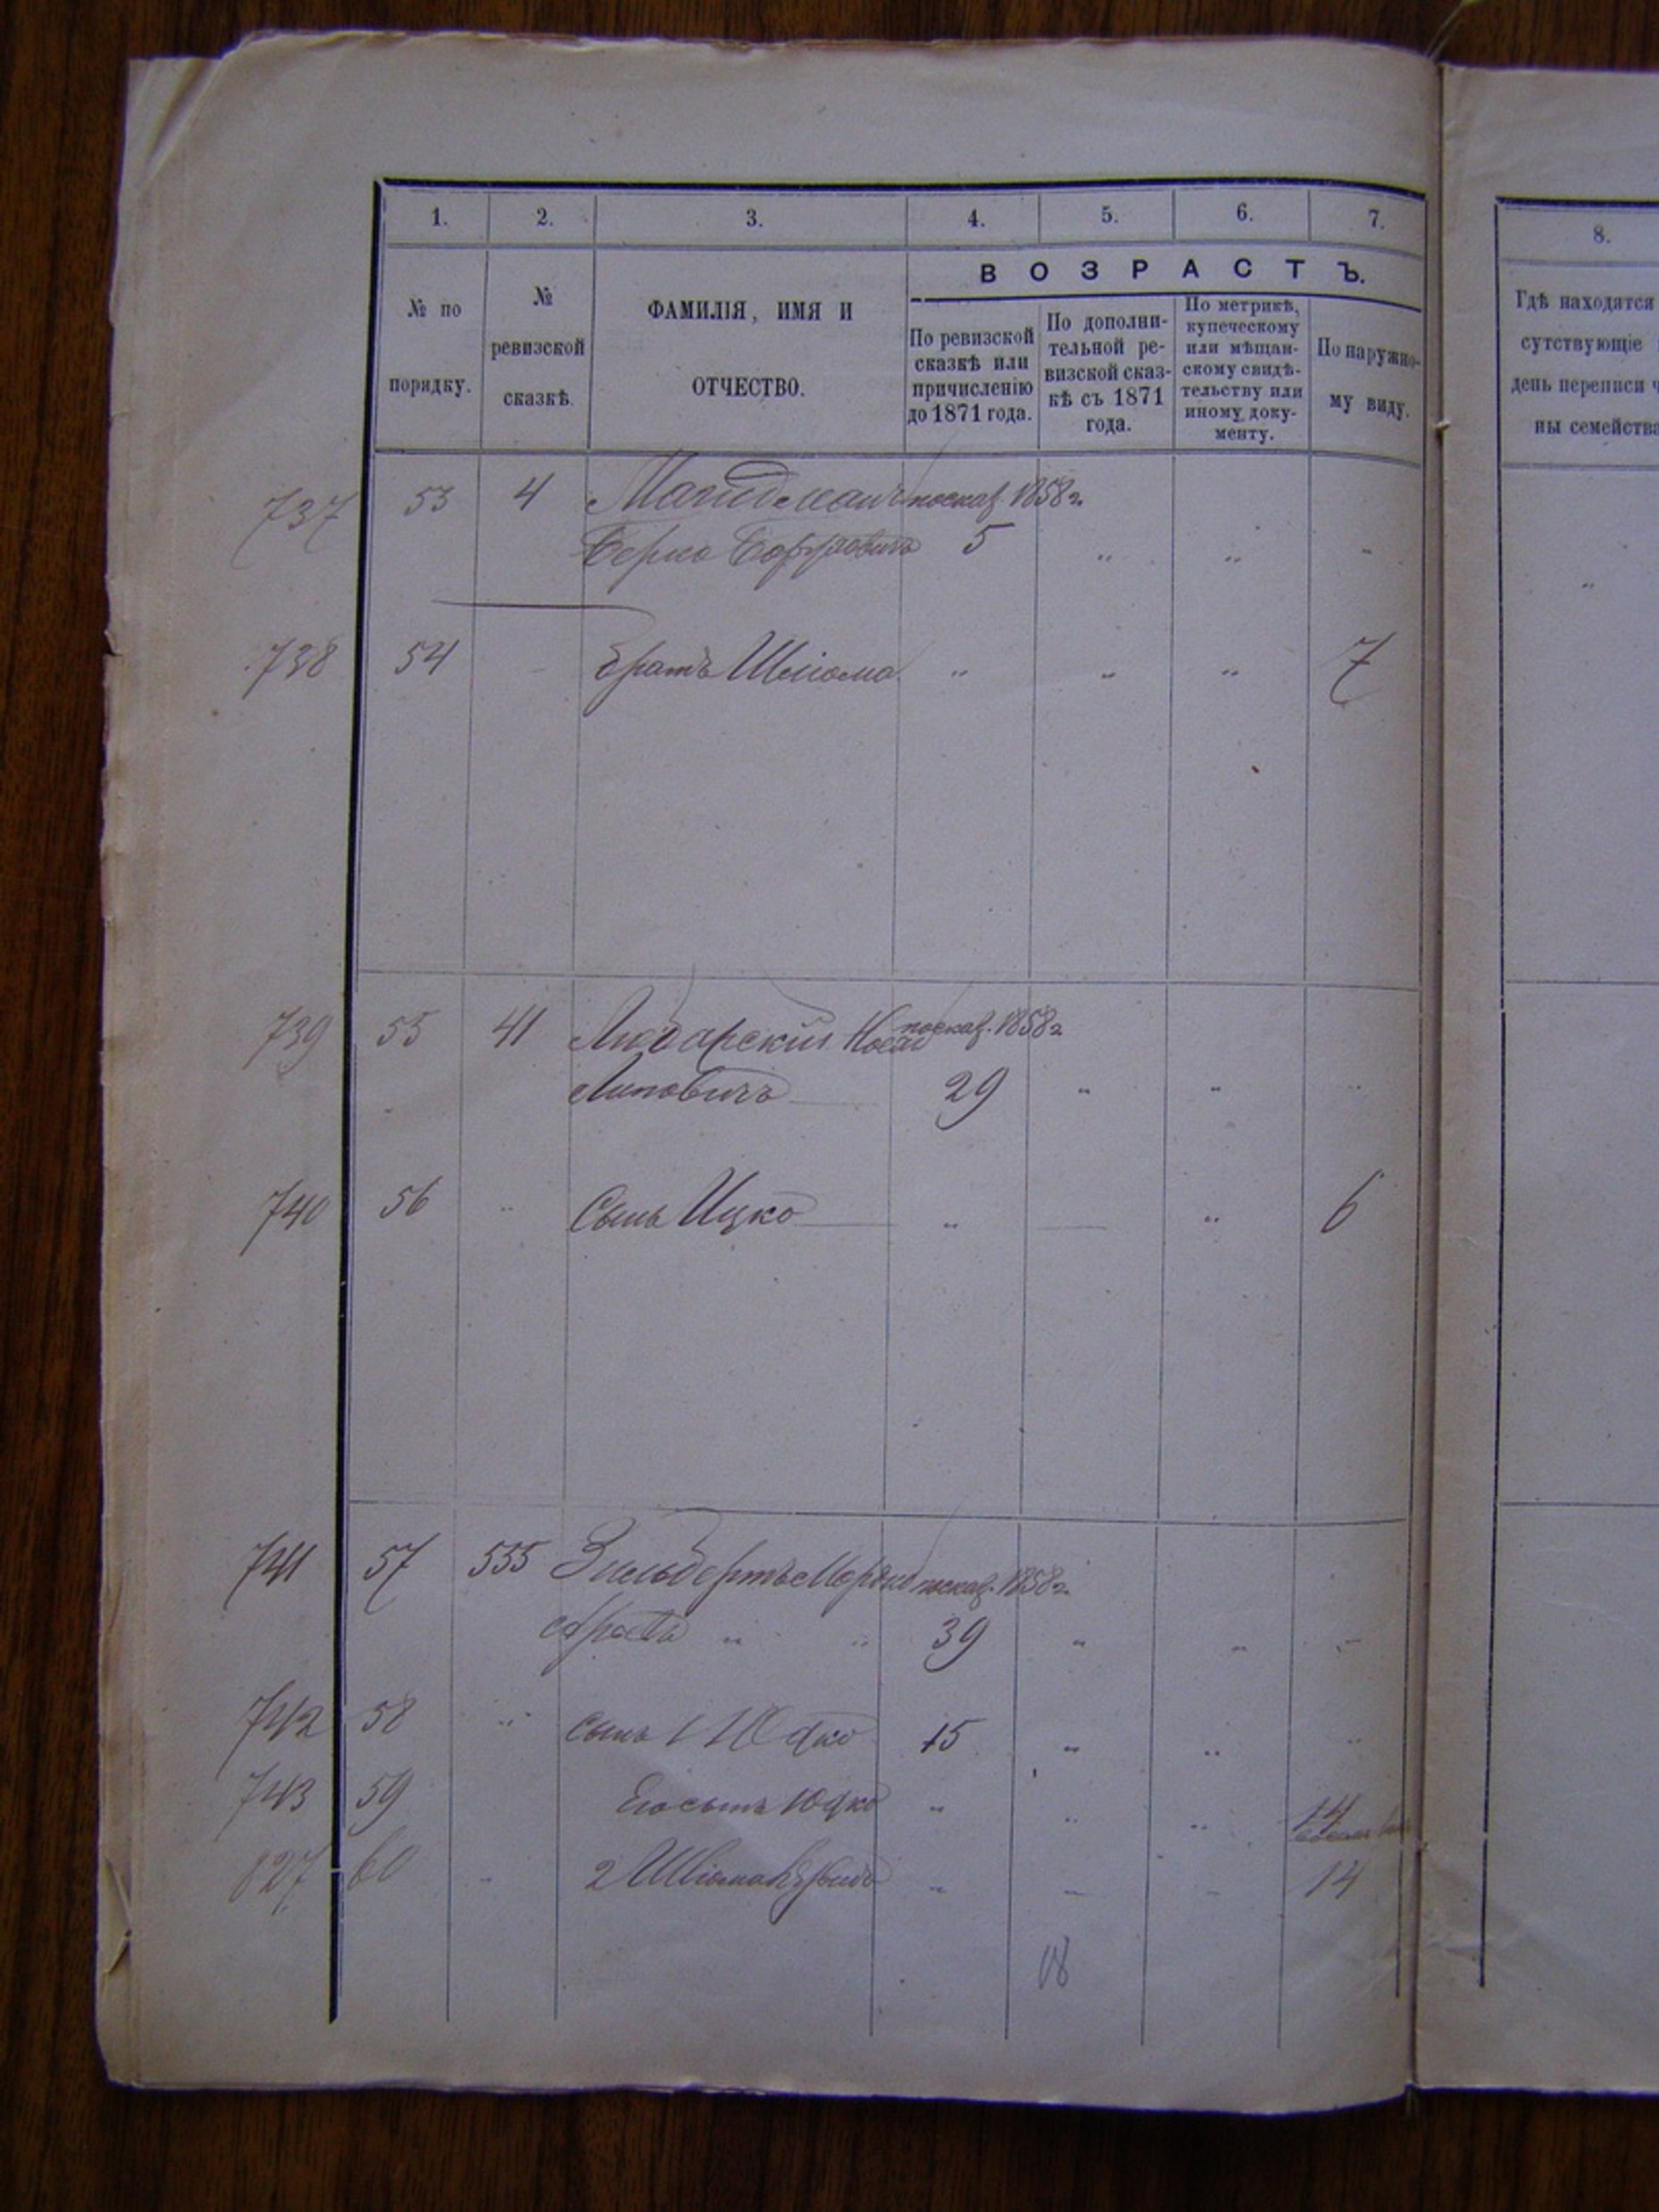 1. 2. 3. 4. 5. 6. 7.
ВОЗРАСТЪ.
№ по порядку.
№ ревизской сказкѣ.
ФАМИЛІЯ, ИМЯ И ОТЧЕСТВО.
По ревизской сказкѣ или причисленію до 1871 года.
По дополни-тельной ре-визской сказ-кѣ съ 1871 года.
По метрикѣ, купеческому или мѣщан-скому свидѣ-тельству или иному доку-менту.
По наружно-му виду.
737 53 4 посказ. 1858 г.
Берко 5 " " "
738 54 - братъ Шлiома " " " 7
739 55 41 Любарскій посказ. 1858 г.
Липовичъ 29 " " "
740 56 " Сынъ Ицко " " 6
741 57 535 Зильбертъ Мордко посказ. 1858 г.
" " 39 " " "
742 58 " сынъ 1 Юдко 15 " " "
743 59 Его сынъ Юдко " " " 14
827 60 " 2 Шлiома " " " 14
18
8.
Гдѣ находятся
сутствующіе
день переписи ч
ны семейства
"